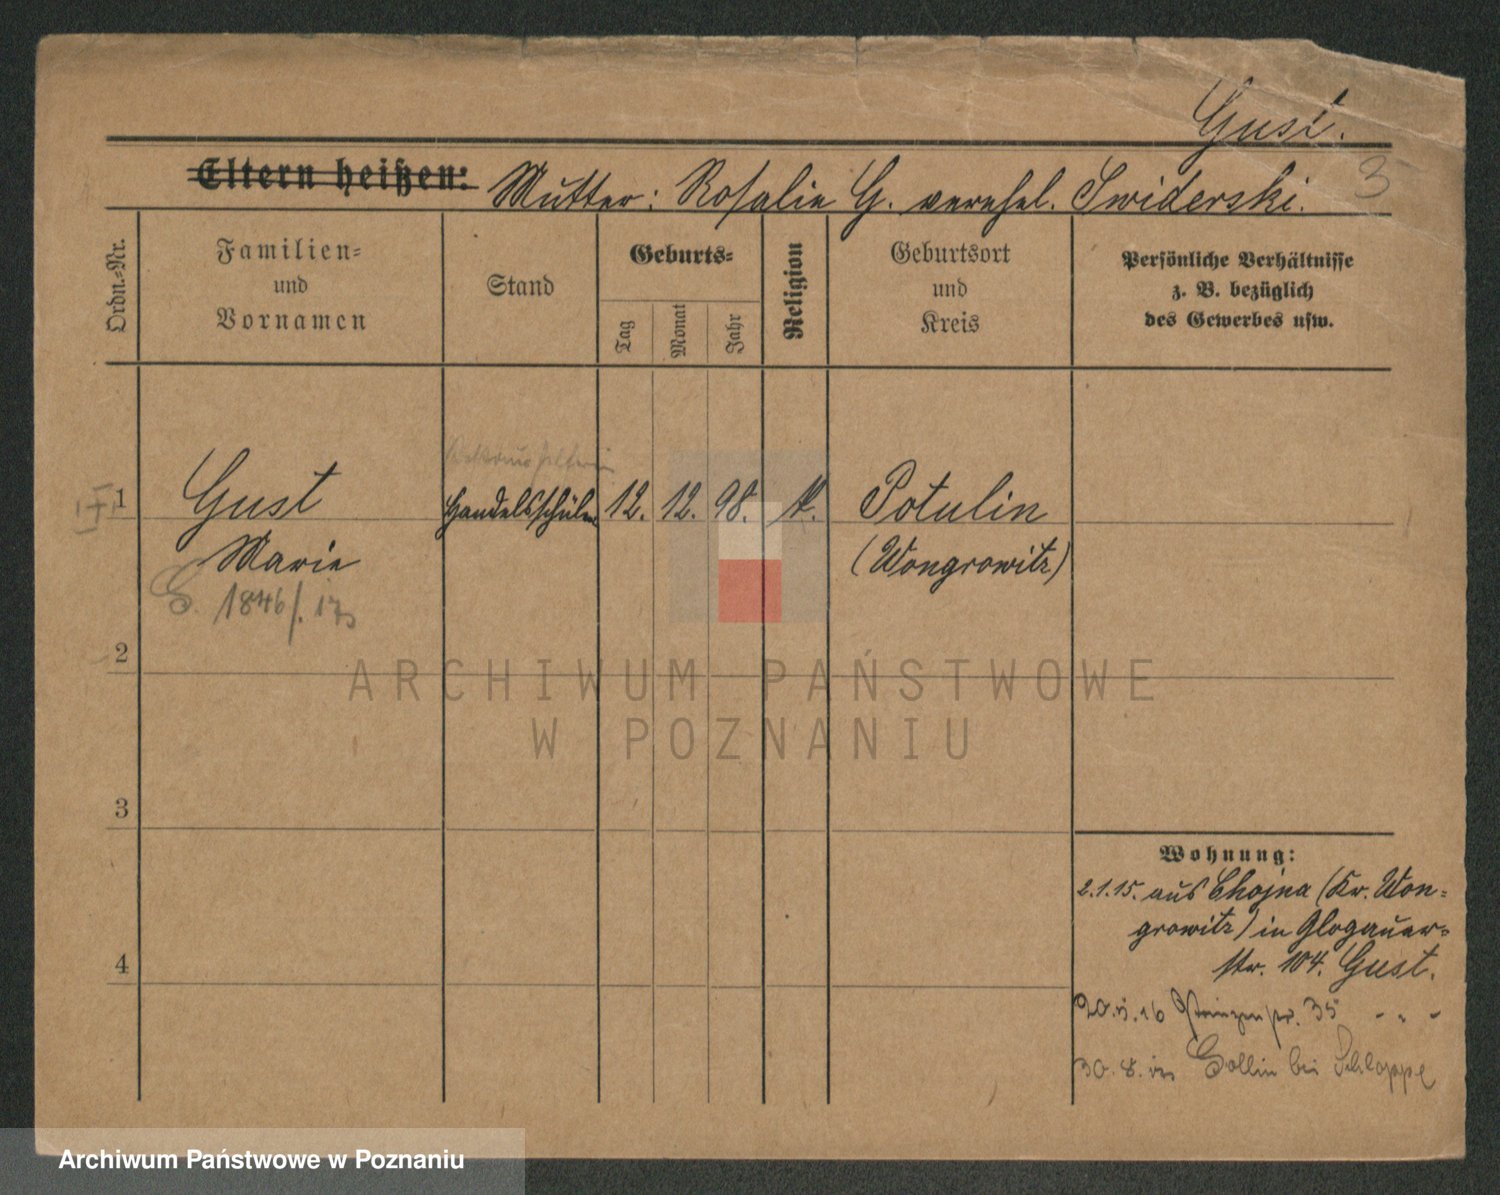 Gust.
3
Eltern heißen: Mutter: Rosalie G. verehel. Swiderski.
Ordn.-Nr.
Familien-
und
Vornamen
Stand
Geburts-
Tag
Monat
Jahr
Religion
Geburtsort
und
Kreis
Persönliche Verhältnisse
z. B. bezüglich
des Gewerbes usw.
1 Gust Handelsschüler. 12. 12. 98. k. Potulin
Marie (Wongrowitz)
G. 1846/.17
2
3
4
Wohnung:
2.1.15. aus Chojna (Kr. Won-
growitz) in Glogauer-
str. 104. Gust.
20. 16 35 - " -
30. 8. in Gollin bei Schloppe
ARCHIWUM PAŃSTWOWE
W POZNANIU
Archiwum Państwowe w Poznaniu